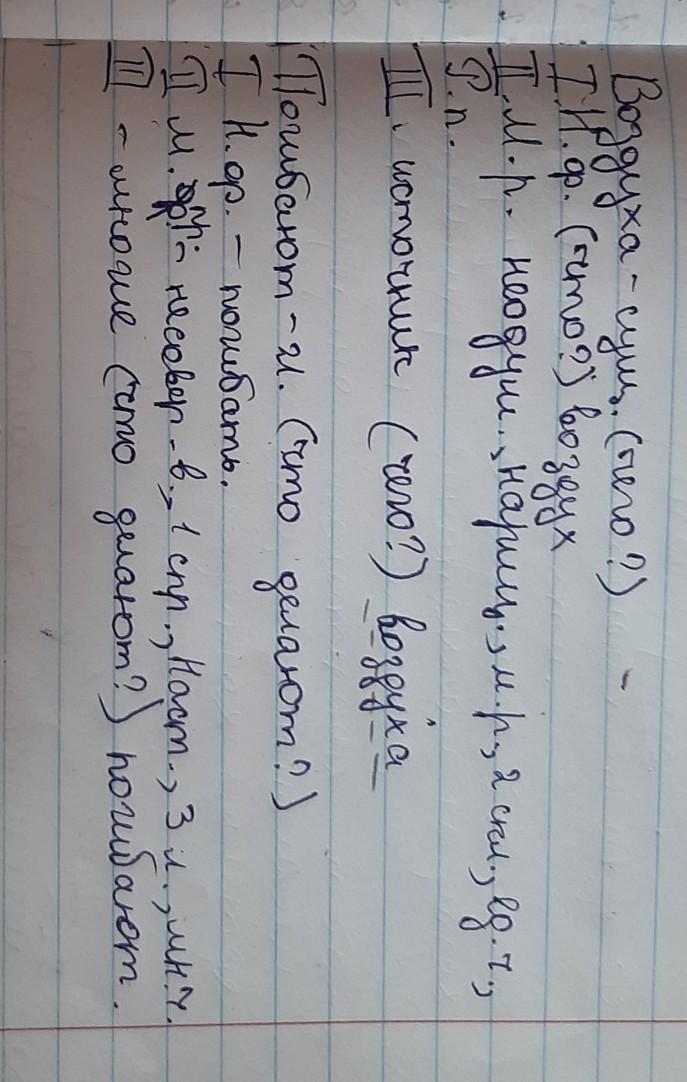 Воздуха - сущ. (чего?) -
I. Н.ф. (что?) воздух
II. М.р. неодуш., нариц., м.р., 2 скл., ед.ч.,
Р.п.
III. источник (чего?) воздуха
Погибают - гл. (что делают?)
I Н.ф. - погибать.
II М. пр. - несовер. в., 1 спр., Наст., 3 л., мн.ч.
III - многие (что делают?) погибают.